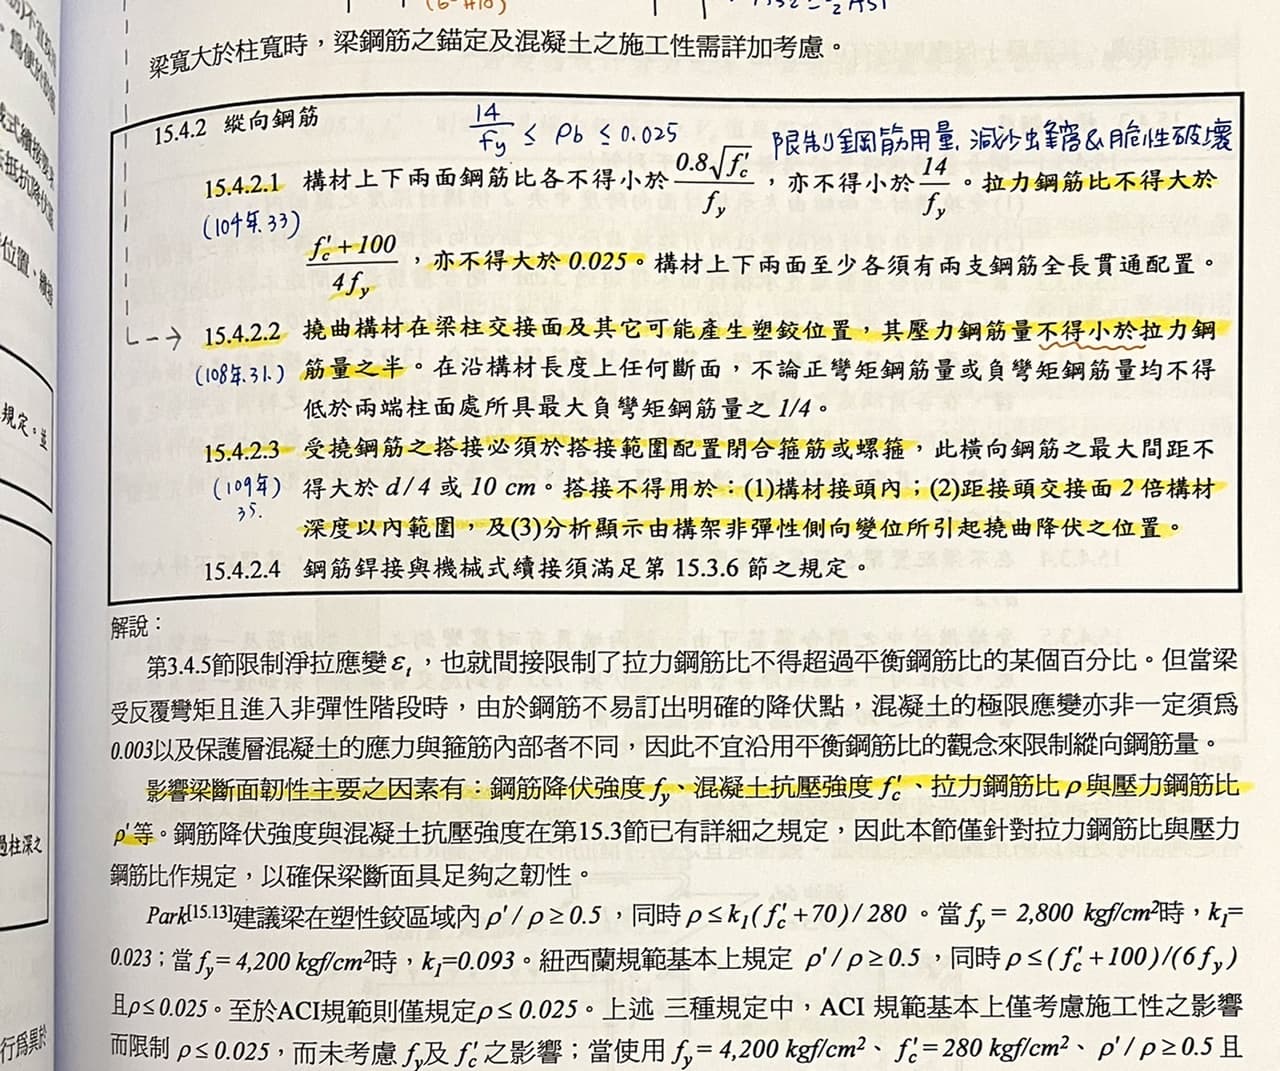 梁寬大於柱寬時，梁鋼筋之錨定及混凝土之施工性需詳加考慮。
15.4.2 縱向鋼筋
14/fy ≤ ρb ≤ 0.025
限制鋼筋用量，減少蜂窩&脆性破壞
15.4.2.1 構材上下兩面鋼筋比各不得小於 0.8√f'c/fy，亦不得小於 14/fy。拉力鋼筋比不得大於
(104年.33)
(f'c+100)/4fy，亦不得大於 0.025。構材上下兩面至少各須有兩支鋼筋全長貫通配置。
15.4.2.2 撓曲構材在梁柱交接面及其它可能產生塑鉸位置，其壓力鋼筋量不得小於拉力鋼
(108年.31.) 筋量之半。在沿構材長度上任何斷面，不論正彎矩鋼筋量或負彎矩鋼筋量均不得
低於兩端柱面處所具最大負彎矩鋼筋量之 1/4。
15.4.2.3 受撓鋼筋之搭接必須於搭接範圍配置閉合箍筋或螺箍，此橫向鋼筋之最大間距不
(109年) 得大於 d/4 或 10 cm。搭接不得用於：(1)構材接頭內；(2)距接頭交接面 2 倍構材
35. 深度以內範圍，及(3)分析顯示由構架非彈性側向變位所引起撓曲降伏之位置。
15.4.2.4 鋼筋銲接與機械式續接須滿足第 15.3.6 節之規定。
解說：
第3.4.5節限制淨拉應變 εt，也就間接限制了拉力鋼筋比不得超過平衡鋼筋比的某個百分比。但當梁
受反覆彎矩且進入非彈性階段時，由於鋼筋不易訂出明確的降伏點，混凝土的極限應變亦非一定須為
0.003以及保護層混凝土的應力與箍筋內部者不同，因此不宜沿用平衡鋼筋比的觀念來限制縱向鋼筋量。
影響梁斷面韌性主要之因素有：鋼筋降伏強度 fy、混凝土抗壓強度 f'c、拉力鋼筋比 ρ 與壓力鋼筋比
ρ'等。鋼筋降伏強度與混凝土抗壓強度在第15.3節已有詳細之規定，因此本節僅針對拉力鋼筋比與壓力
鋼筋比作規定，以確保梁斷面具足夠之韌性。
Park[15.13]建議梁在塑性鉸區域內 ρ'/ρ≥0.5，同時 ρ≤k1(f'c+70)/280。當 fy= 2,800 kgf/cm²時，k1=
0.023；當 fy=4,200 kgf/cm²時，k1=0.093。紐西蘭規範基本上規定 ρ'/ρ≥0.5，同時 ρ≤(f'c+100)/(6fy)
且ρ≤0.025。至於ACI規範則僅規定ρ≤0.025。上述 三種規定中，ACI 規範基本上僅考慮施工性之影響
而限制 ρ≤0.025，而未考慮 fy及 f'c 之影響；當使用 fy= 4,200 kgf/cm²、 f'c=280 kgf/cm²、 ρ'/ρ≥0.5 且